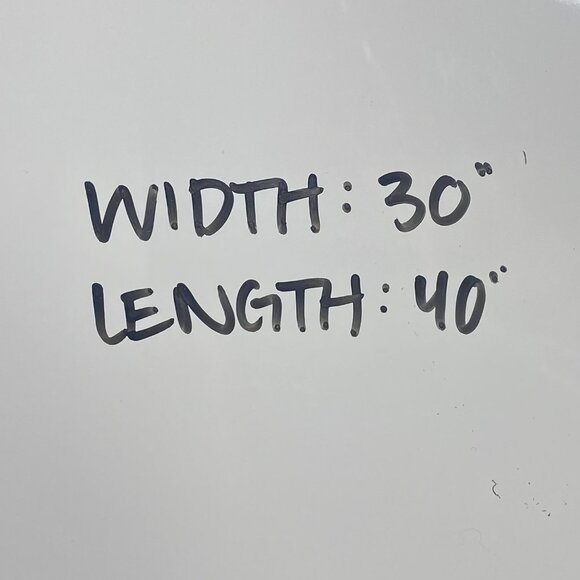 WIDTH: 30"
LENGTH: 40"